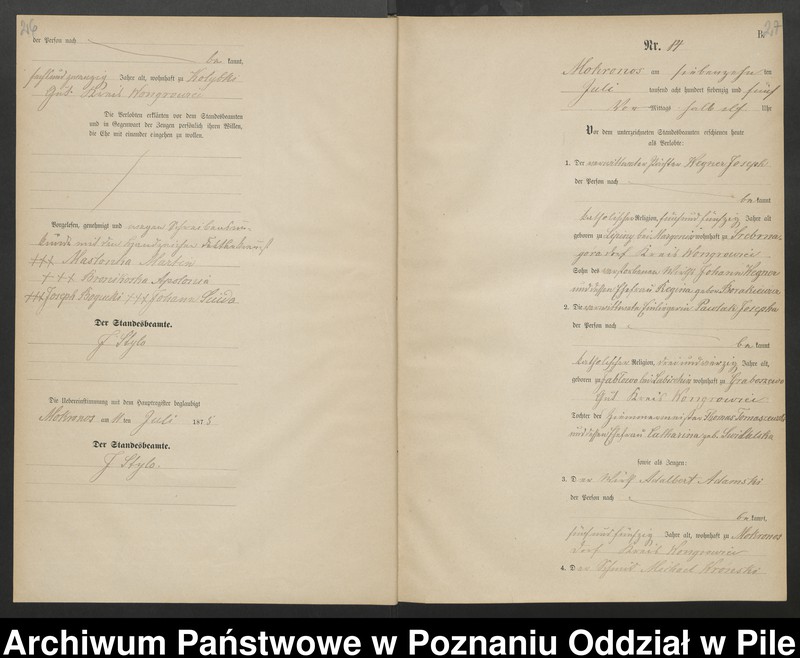 26
der Person nach
be kannt,
sechsundzwanzig Jahre alt, wohnhaft zu Kolybki
Gut Kreis Wongrowiec
Die Verlobten erklärten vor dem Standesbeamten
und in Gegenwart der Zeugen persönlich ihren Willen,
die Ehe mit einander eingehen zu wollen.
Vorgelesen, genehmigt und wegen Schreibensun-
kunde mit den Handzeichen
+++ Maslonka Martin
+++ Bronikoska Apolonia
+++ Joseph Rogucki +++ Johann
Der Standesbeamte.
J Stylo
Die Uebereinstimmung mit dem Hauptregister beglaubigt
Mokronos am 11 ten Juli 1875
Der Standesbeamte.
J Stylo.
B.
27
Nr. 14
Mokronos am siebenzehn ten
Juli tausend acht hundert siebenzig und fünf
Vor Mittags halb elf Uhr
Vor dem unterzeichneten Standesbeamten erschienen heute
als Verlobte:
1. Der verwittweter Wegner Joseph
der Person nach
be kannt
katholischer Religion, fünf und fünfzig Jahre alt
geboren zu bei wohnhaft zu Srebrna-
gora dorf Kreis Wongrowiec
Sohn des verstorbenen Wirth Johann Wegner
und dessen Ehefrau Regina geborn
2. Die verwittwete Einliegerin Pawlak Josepha
der Person nach
be kannt
katholischer Religion, drei und vierzig Jahre alt,
geboren zu Jablowo bei Labischin wohnhaft zu Graboszewo
Gut Kreis Wongrowiec
Tochter der Zimmermeister Thomas
und dessen Ehefrau Catharina geb.
sowie als Zeugen:
3. D er Wirth Adalbert Adamski
der Person nach
be kannt,
fünf und fünfzig Jahre alt, wohnhaft zu Mokronos
Dorf Kreis Wongrowiec
4. D er Schmid Michael Wronski
Archiwum Państwowe w Poznaniu Oddział w Pile